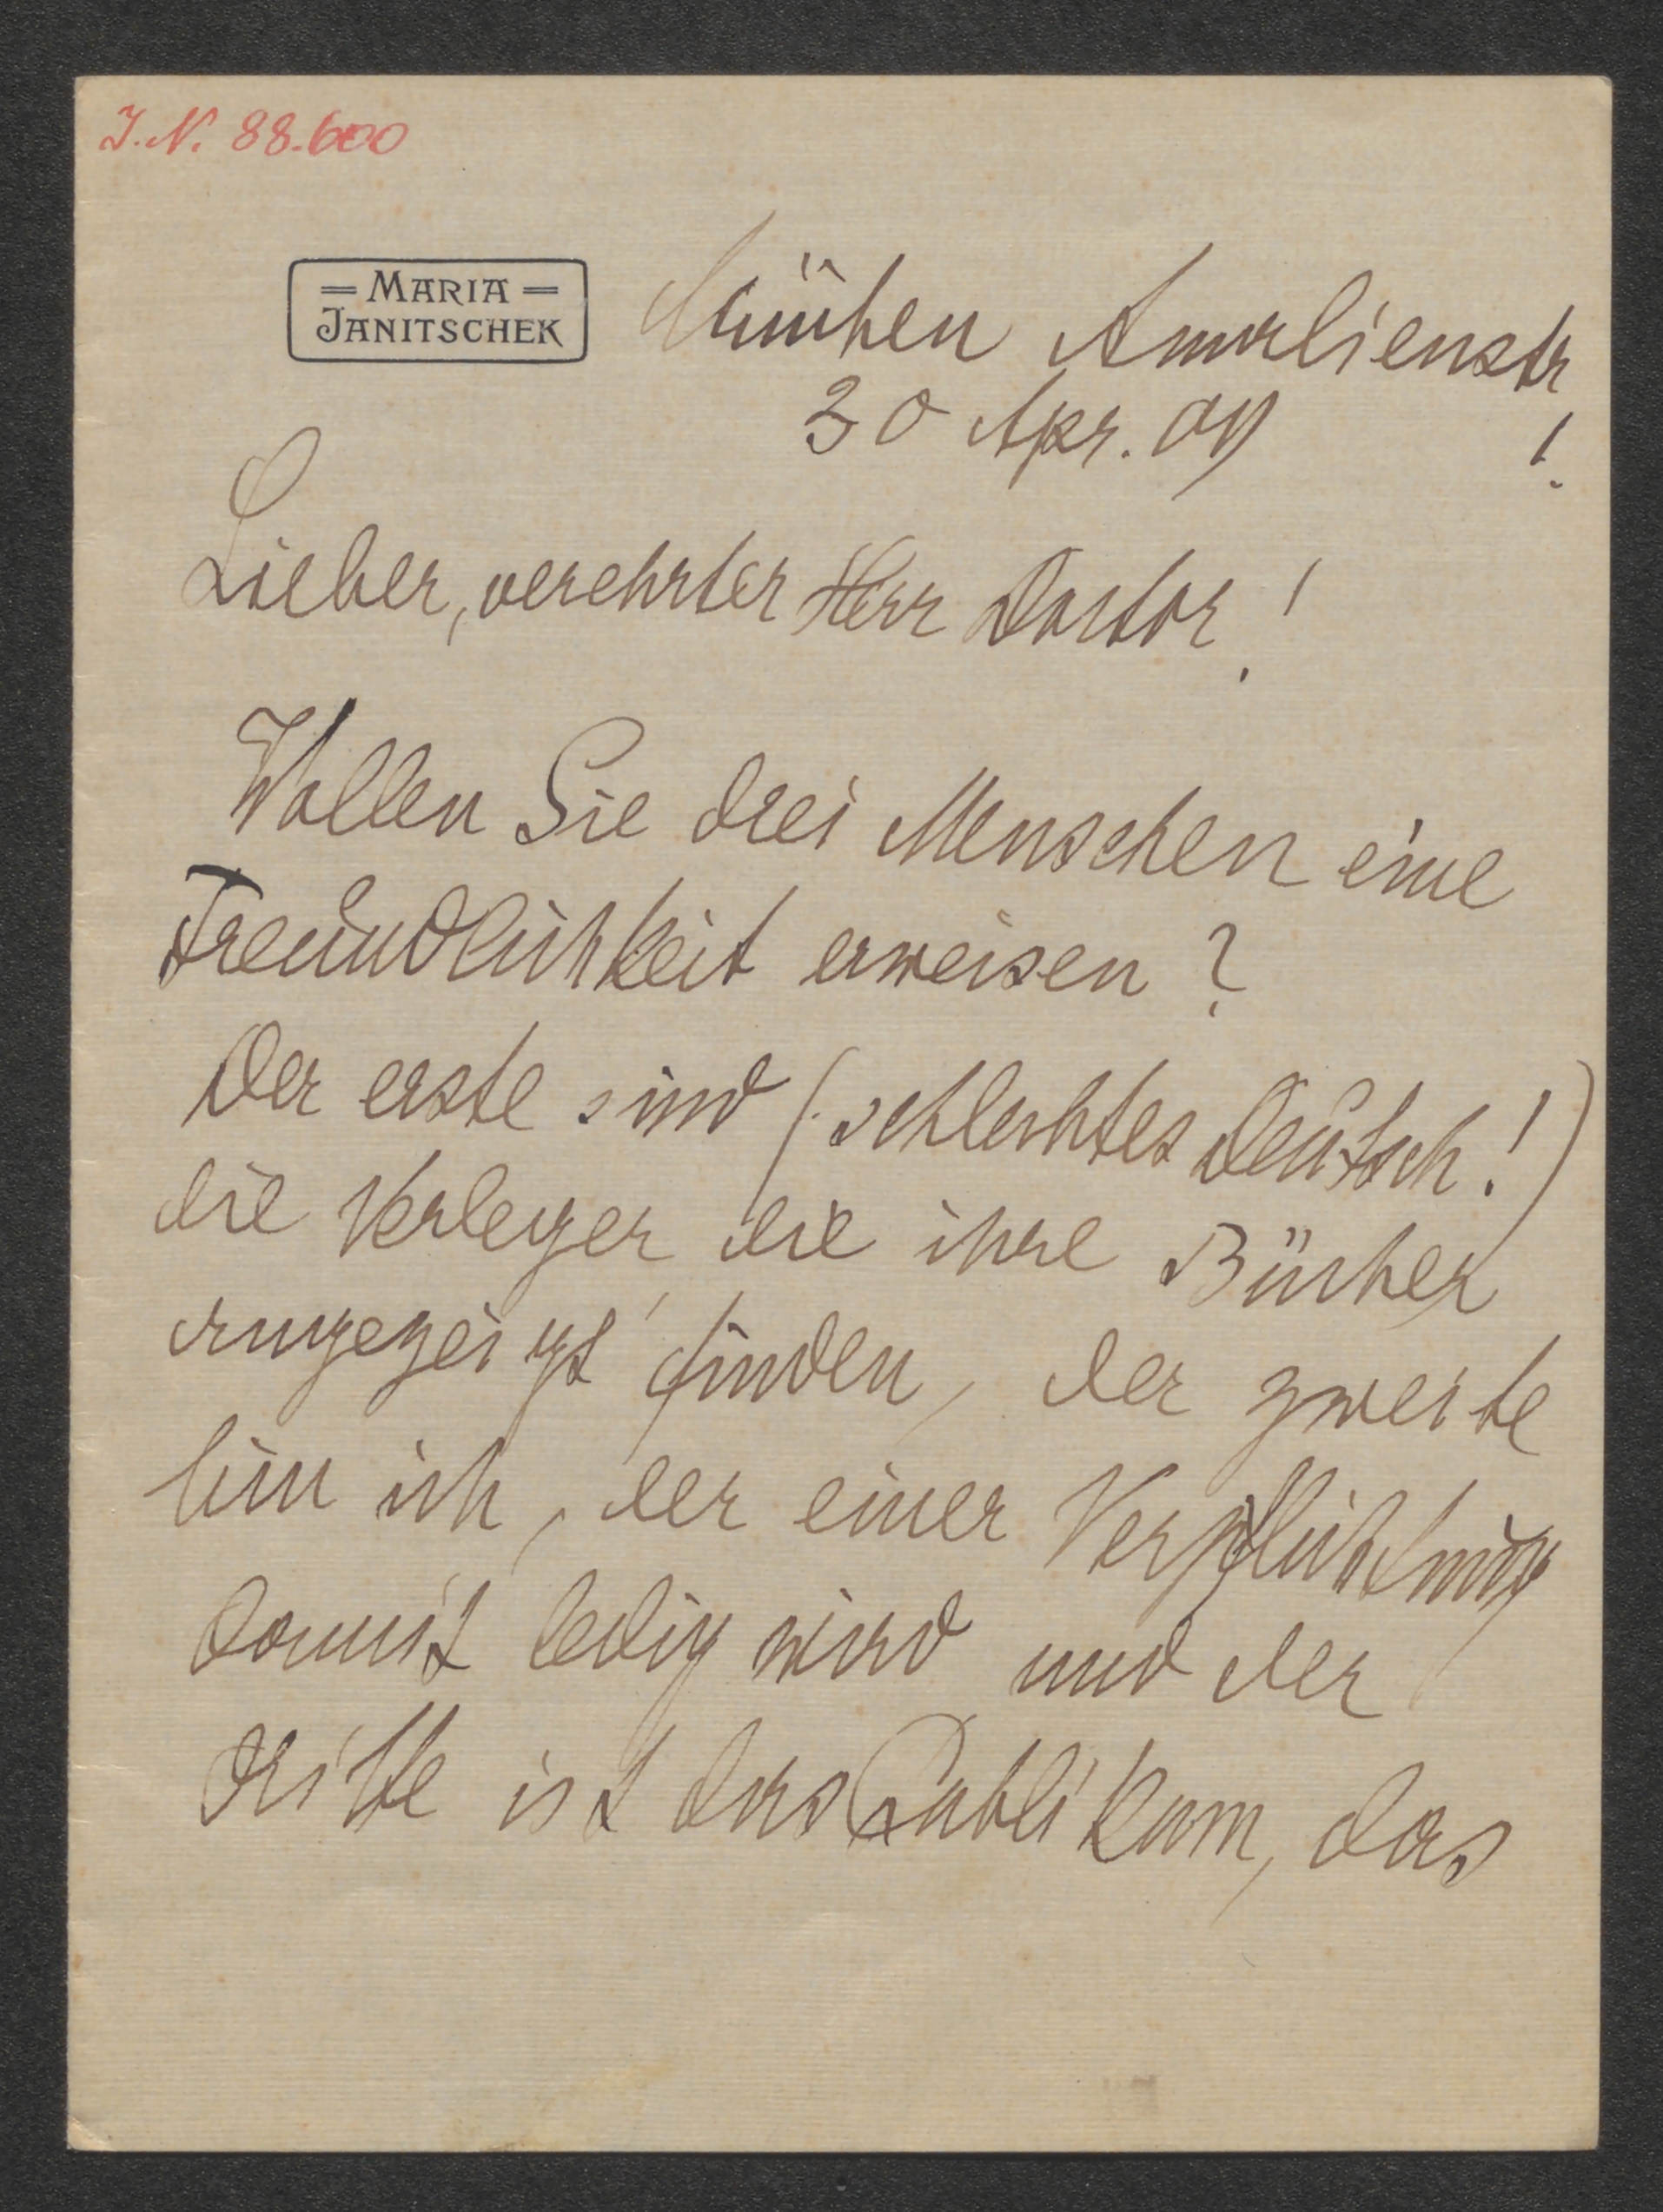 J.N. 88.600
= MARIA =
JANITSCHEK
München Amalienstr
30 Apr. 09 1.
Lieber, verehrter Herr Doctor!
Wollen Sie drei Menschen eine
Freundlichkeit erweisen?
Der erste sind (schlechtes Deutsch!)
die Verleger die ihre Bücher
angezeigt finden, der zweite
bin ich, der einer Verpflichtung
damit ledig wird und der
dritte ist das Publikum, das